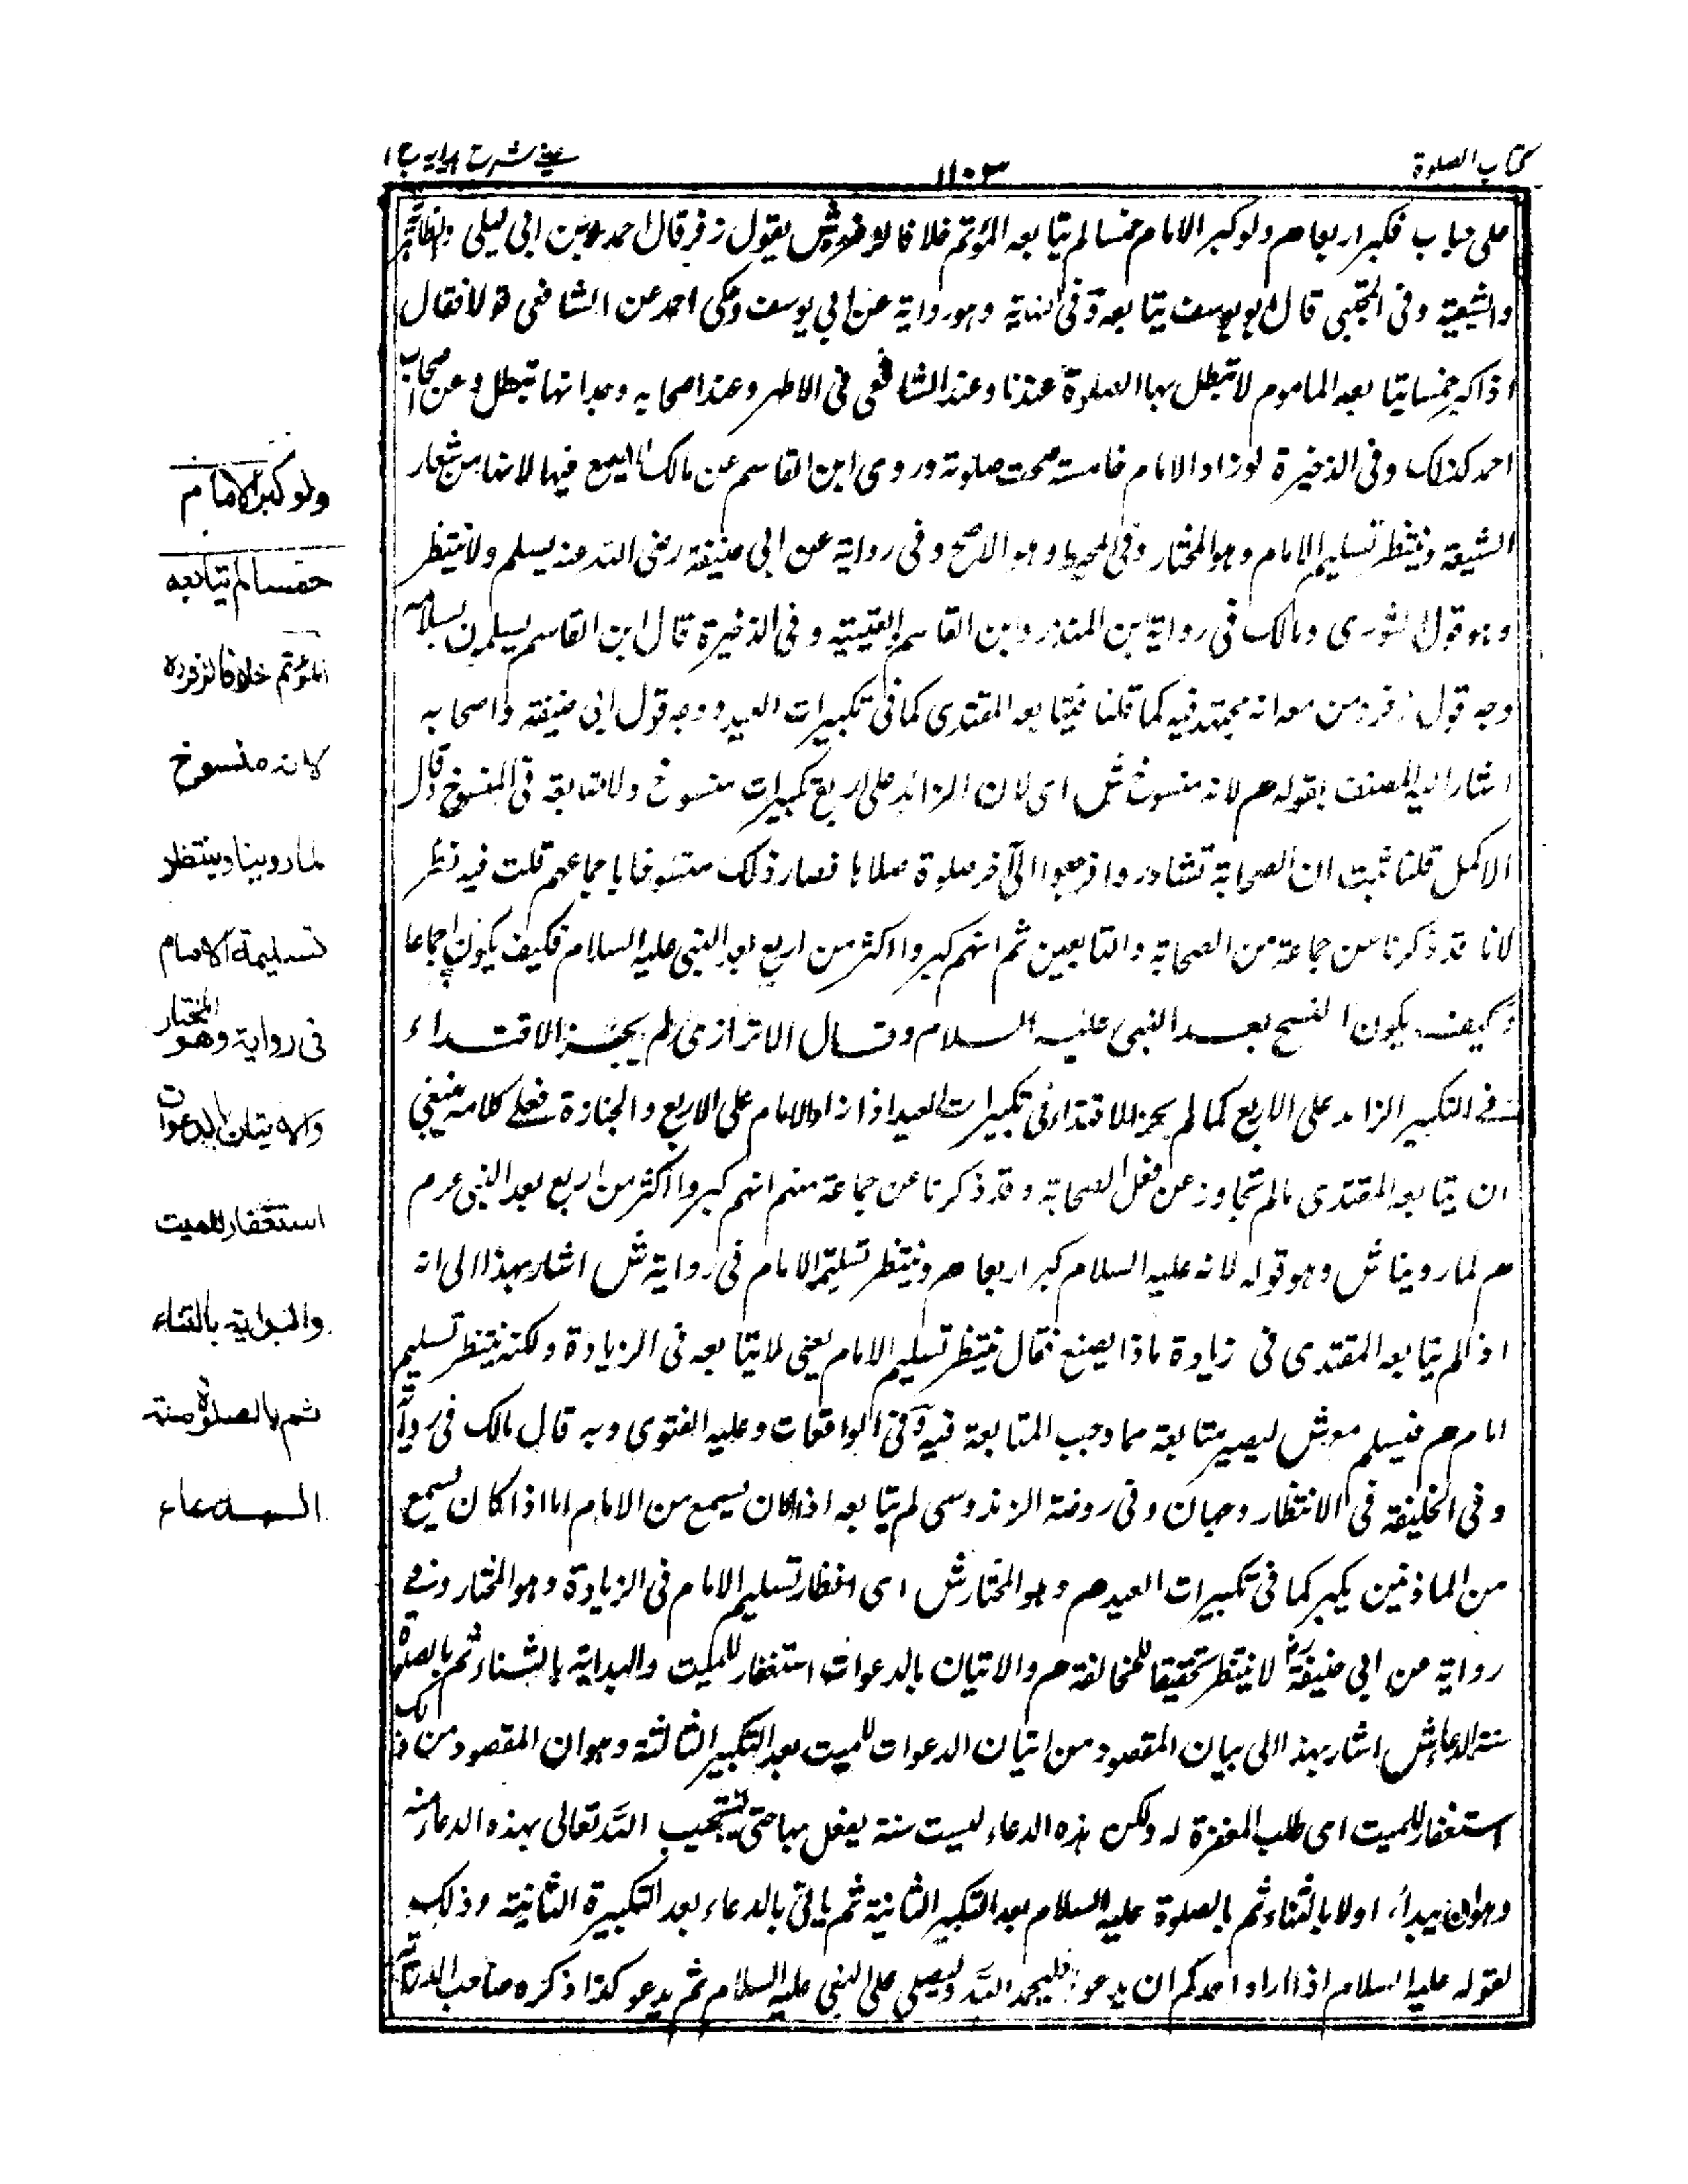 كتاب الصلوة
١١٠٣
عينى شرح هدايه ج ١
على جباب فكبر اربعا م ولو كبر الامام خمسا لم يتابعه المؤتم خلافا لزفر ش بقول زفر قال احمد وابن ابى ليلى والظاهرية
والشيعة وفى المجتبى قال ابو يوسف يتابعه وفى النهاية وهو رواية عن ابى يوسف وحكى احمد عن الشافعى قولا فقال
اذا كبر خمسا يتابعه الماموم لا تبطل بها الصلوة عندنا وعند الشافعى فى الاظهر وعند اصحابه وجد انها تبطل وعن اصحاب
احمد كذلك وفى الذخيرة لو زاد الامام خامسة صحت صلوته وروى ابن القاسم عن مالك فيها لانها من شعار
الشيعة وينتظر تسليم الامام وهو المختار وفى المحيط وهو الاصح وفى رواية عن ابى حنيفة رضى الله عنه يسلم ولا ينتظر
وهو قول الثورى ومالك فى رواية ابن المنذر وابن القاسم العتبية وفى الذخيرة قال ابن القاسم يسلمون بسلامه
وجه قول زفر ومن معه انه مجتهد فيه كما قلنا فيتابعه المقتدى كما فى تكبيرات العيد ووجه قول ابى حنيفة واصحابه
اشار اليه المصنف بقوله م لانه منسوخ ش اى لان الزائد على اربع تكبيرات منسوخ ولا متابعة فى المنسوخ وقال
الاكمل قلنا ثبت ان الصحابة تشاوروا فرجعوا الى آخر صلوة صلاها فصار ذلك منسوخا باجماعهم قلت فيه نظر
لانا قد ذكرنا عن جماعة من الصحابة والتابعين ثم انهم كبروا اكثر من اربع بعد النبى عليه السلام فكيف يكون اجماعا
وكيف يكون النسخ بعد النبى عليه السلام وقال الاترازى لم يجز الاقتداء
فى التكبير الزائد على الاربع كما لم يجز الاقتداء فى تكبيرات العيد اذا زاد الامام على الاربع والجنازة فعلى كلامه ينبغى
ان يتابعه المقتدى ما لم يتجاوز عن فعل الصحابة وقد ذكرنا عن جماعة منهم انهم كبروا اكثر من اربع بعد النبى عم م
م لما روينا ش وهو قوله لانه عليه السلام كبر اربعا م وينتظر تسليمة الامام فى رواية ش اشار بهذا الى انه
اذا لم يتابعه المقتدى فى زيادة ماذا يصنع فقال ينتظر تسليم الامام يعنى لا يتابعه فى الزيادة ولكنه ينتظر تسليم
امام م فيسلم معه ش ليصير متابعة مما وجب المتابعة فيه وفى الواقعات وعليه الفتوى وبه قال مالك فى رواية
وفى الخليفة فى الانتظار وجهان وفى روضة الزندوسى لم يتابعه اذا كان يسمع من الامام اما اذا كان يسمع
من الماذنين يكبر كما فى تكبيرات العيد م وهو المختار ش اى انتظار تسليم الامام فى الزيادة وهو المختار وفى
رواية عن ابى حنيفة رض لا ينتظر تحقيقا للمخالفة م والاتيان بالدعوات استغفار للميت والبداية بالثناء ثم بالصلوة
سنة الدعاء ش اشار بهذا الى بيان المقصود من اتيان الدعوات للميت بعد التكبير الثالثة وهو ان المقصود من ذلك
استغفار للميت اى طلب المغفرة له ولكن هذه الدعاء ليست سنة يفعل بها حتى يستجيب الله تعالى بهذه الدعاء منه
وهو ان يبدأ اولا بالثناء ثم بالصلوة عليه السلام بعد التكبير الثانية ثم ياتى بالدعاء بعد التكبيرة الثانية وذلك
لقوله عليه السلام اذا اراد احدكم ان يدعو فليحمد الله وليصلى على النبى عليه السلام ثم يدعو كذا ذكره صاحب الدراية
ولو كبر الامام
خمسا لم يتابعه
المؤتم خلافا لزفر
لانه منسوخ
لما روينا وينتظر
تسليمة الامام
فى رواية وهو المختار
والاتيان بالدعوات
استغفار للميت
والبداية بالثناء
ثم بالصلوة سنة
الدعاء